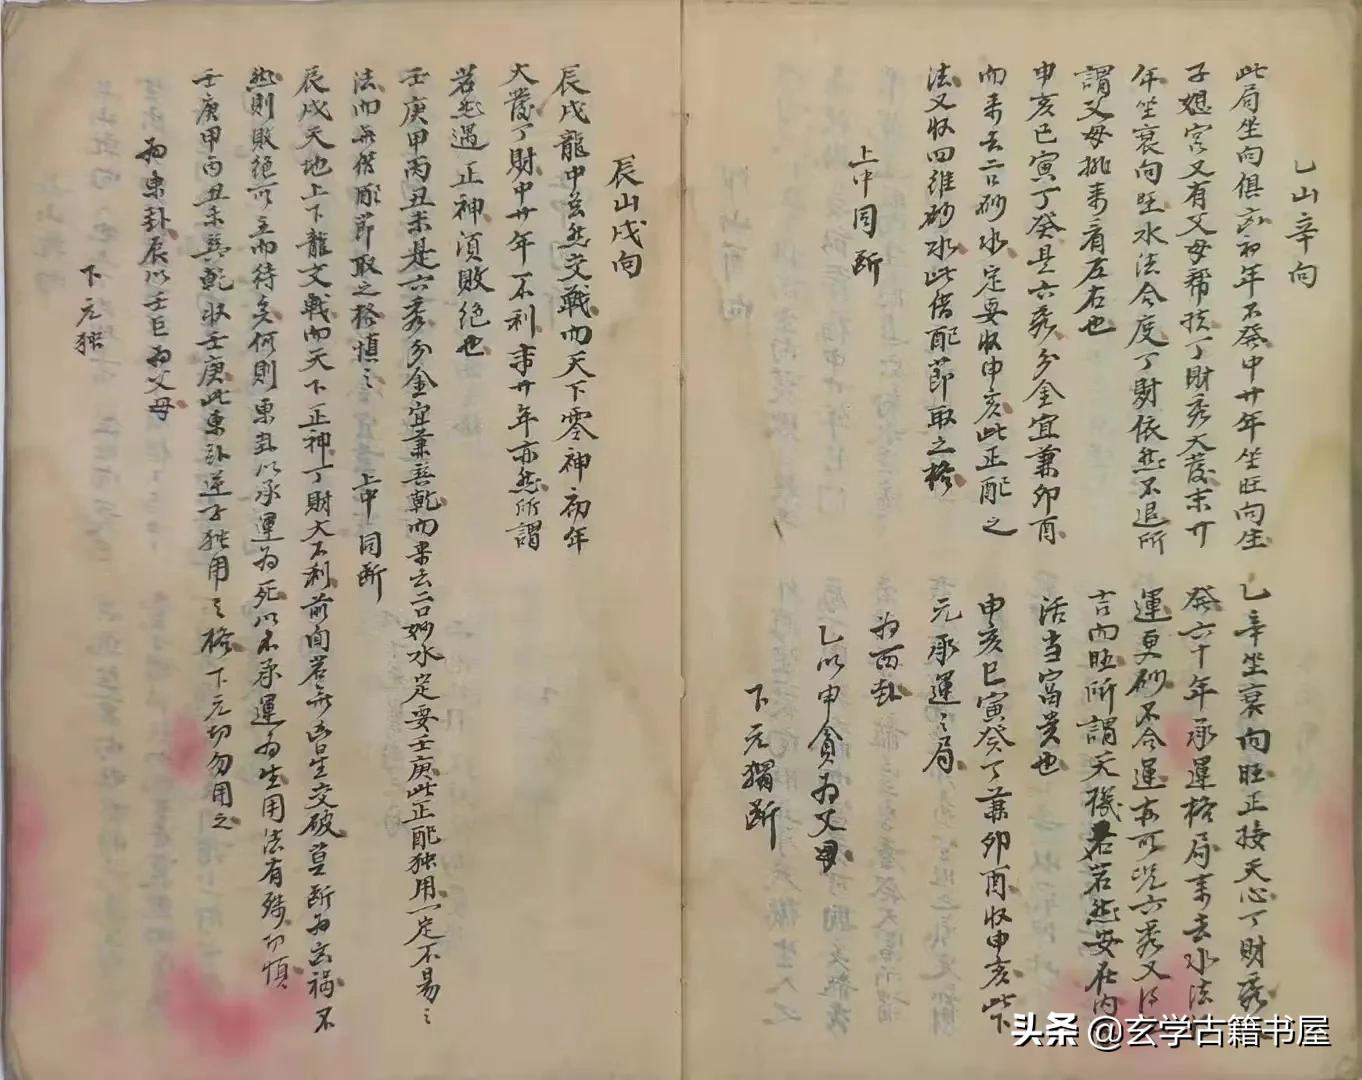 乙山辛向
此局坐向俱囚初年不發中廿年坐旺向生
子媳宮又有父母帮扶丁財秀大發末廿
年坐衰向旺水法合度丁財依然不退所
謂父母排來看左右也
申亥巳寅丁癸是六秀分金宜兼卯酉
而来去二口砂水定要收申亥此正配之
法又收四維砂水此借配節取之格
上中同断
乙辛坐衰向旺正接天心丁財秀
發六十年承運格局来去水法
運更砂不合運亦可况六秀又
吉向旺所謂天機若然安在内
活当富贵也
申亥巳寅癸丁兼卯酉收申亥此下
元承運之局
为西卦
乙以申貪为父母
下元獨断
辰山戌向
辰戌龍中亥然交戰而天下零神初年
大發丁財中廿年不利末廿年亦然所謂
若然遇正神須敗绝也
壬庚甲丙丑未是六秀分金宜兼巽乾而来去二口妙水定要壬庚此正配独用一定不易之
法而無借配節取之格慎之
上中同断
辰戌天地上下龍交戰而天下正神丁財大不利前向若無凶星交破莫断为玄祸不
然則敗绝可立而待矣何則東卦以承運为死以不承運为生用法有殊切慎
壬庚甲丙丑未兼乾收壬庚此東卦逆子独用之格下元切勿用之
为東卦辰以壬巨为父母
下元独
头条 @玄学古籍书屋